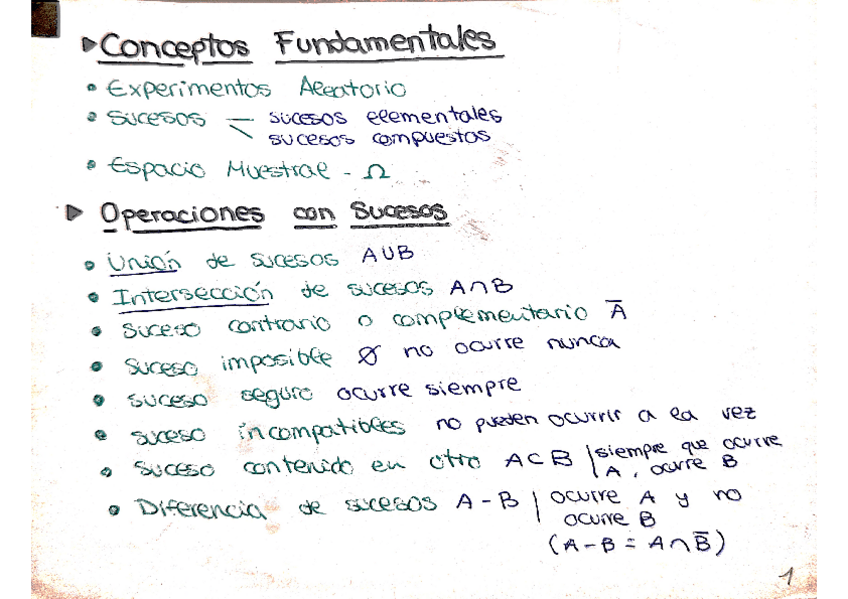 ▶ Conceptos Fundamentales
• Experimentos Aleatorio
• sucesos — sucesos elementales
sucesos compuestos
• Espacio Muestral - Ω
▶ Operaciones con Sucesos
• Unión de sucesos A∪B
• Intersección de sucesos A∩B
• suceso contrario o complementario A̅
• suceso imposible ∅ no ocurre nunca
• suceso seguro ocurre siempre
• suceso incompatibles no pueden ocurrir a la vez
• suceso contenido en otro A⊂B | siempre que ocurre
A, ocurre B
• Diferencia de sucesos A-B | ocurre A y no
ocurre B
(A-B = A∩B̅)
1